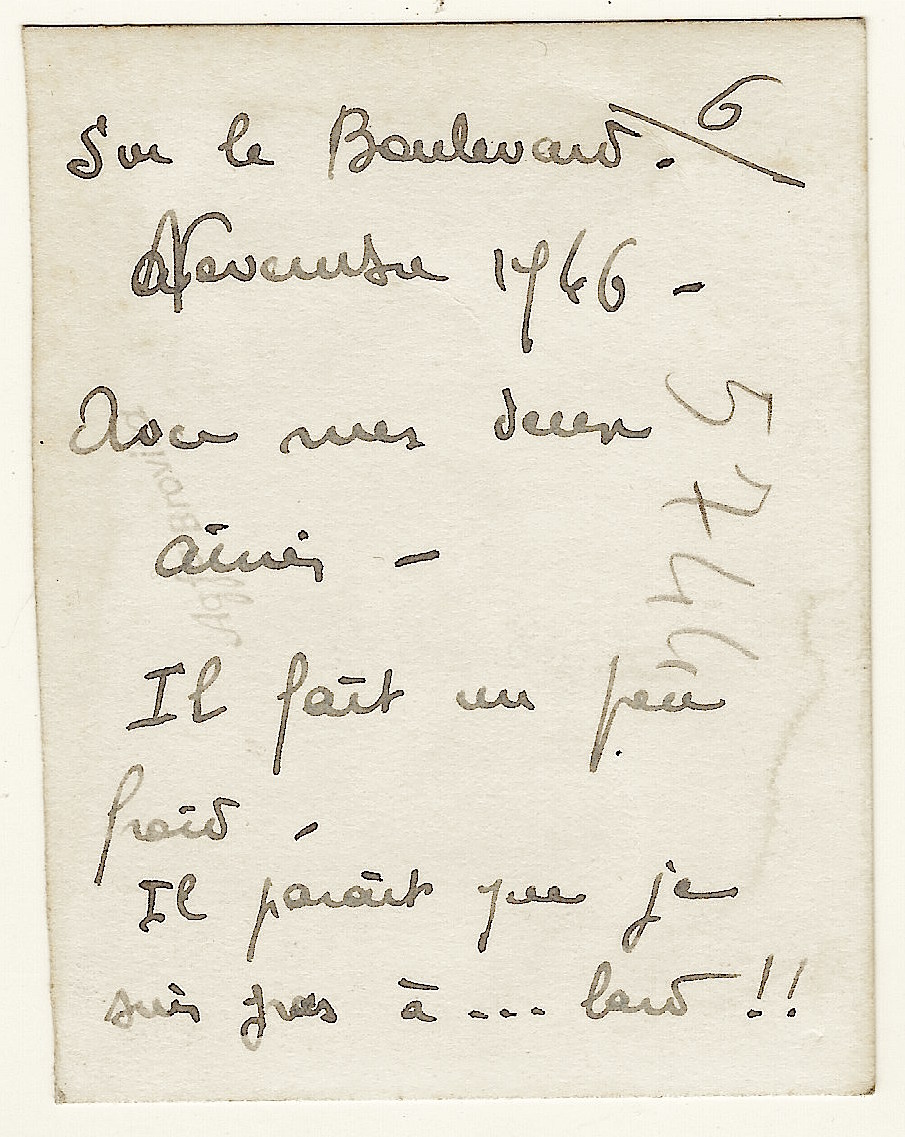 Sur le Boulevard. 6
Novembre 1946 -
Avec mes deux
aînés -
Il fait un peu
froid -
Il paraît que je
suis gras à ... lard !!
5744